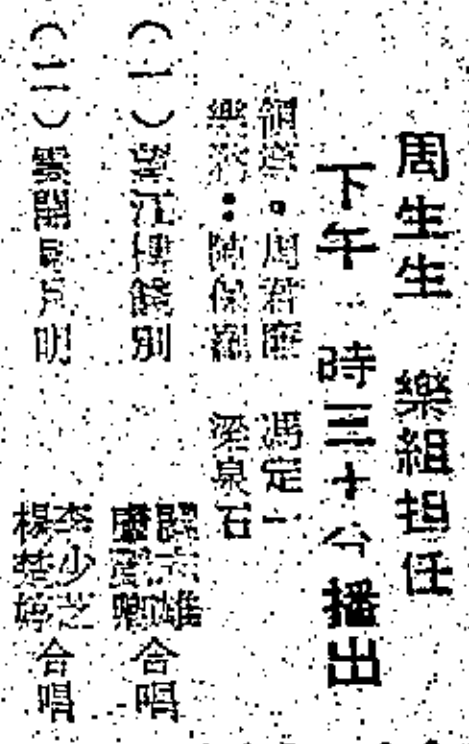 周生生 樂組担任
下午 時三十分播出
領導：周君 馮定一
樂務：陳保 梁泉石
（一）望江樓餞別 雄 合唱
（二）雲開見月明 李少芝 楊楚婷 合唱